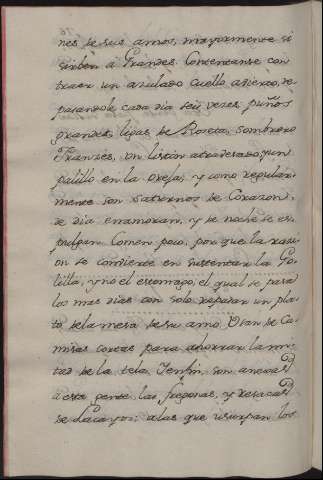 nes de sus amos, mayormente si
sirben à Grandes. Contentanse con
traer un azulado cuello abierto, re
parandole cada dia seis vezes puños
grandes, ligas de Roseta, sombrero
Franzès, un listón atravesado, y un
palillo en la oreja, y como regular
mente son saturnos de Corazon,
de dia enamoran, y de noche se es
pulgan. Comen poco, por que la razi
on se combierte en sustentar la Go
lilla, y no el estomago, el qual se pasa
los mas dias con solo repasar un pla
to de la mesa de su amo. Usan de Ca
misas cortas para ahorrar la mi
tad de la tela. Y enfin, son anexas
à esta gente las fregonas, y resacas
de Lacayos: a las que usurpan los